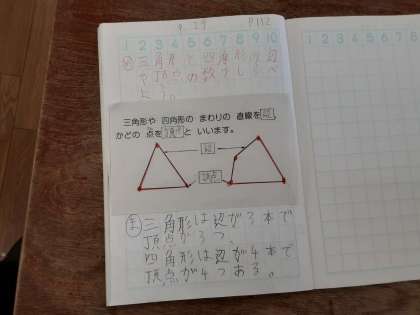 9.29 P112
1 2 3 4 5 6 7 8 9 10
め 三角形と四角形の辺
や頂点の数をしらべ
よう。
三角形や 四角形の まわりの 直線を 辺、
かどの 点を 頂点 と いいます。
辺
頂点
ま 三角形は辺が3本で
頂点が3つ、
四角形は辺が4本で
頂点が4つある。
1 2 3 4 5 6 7 8